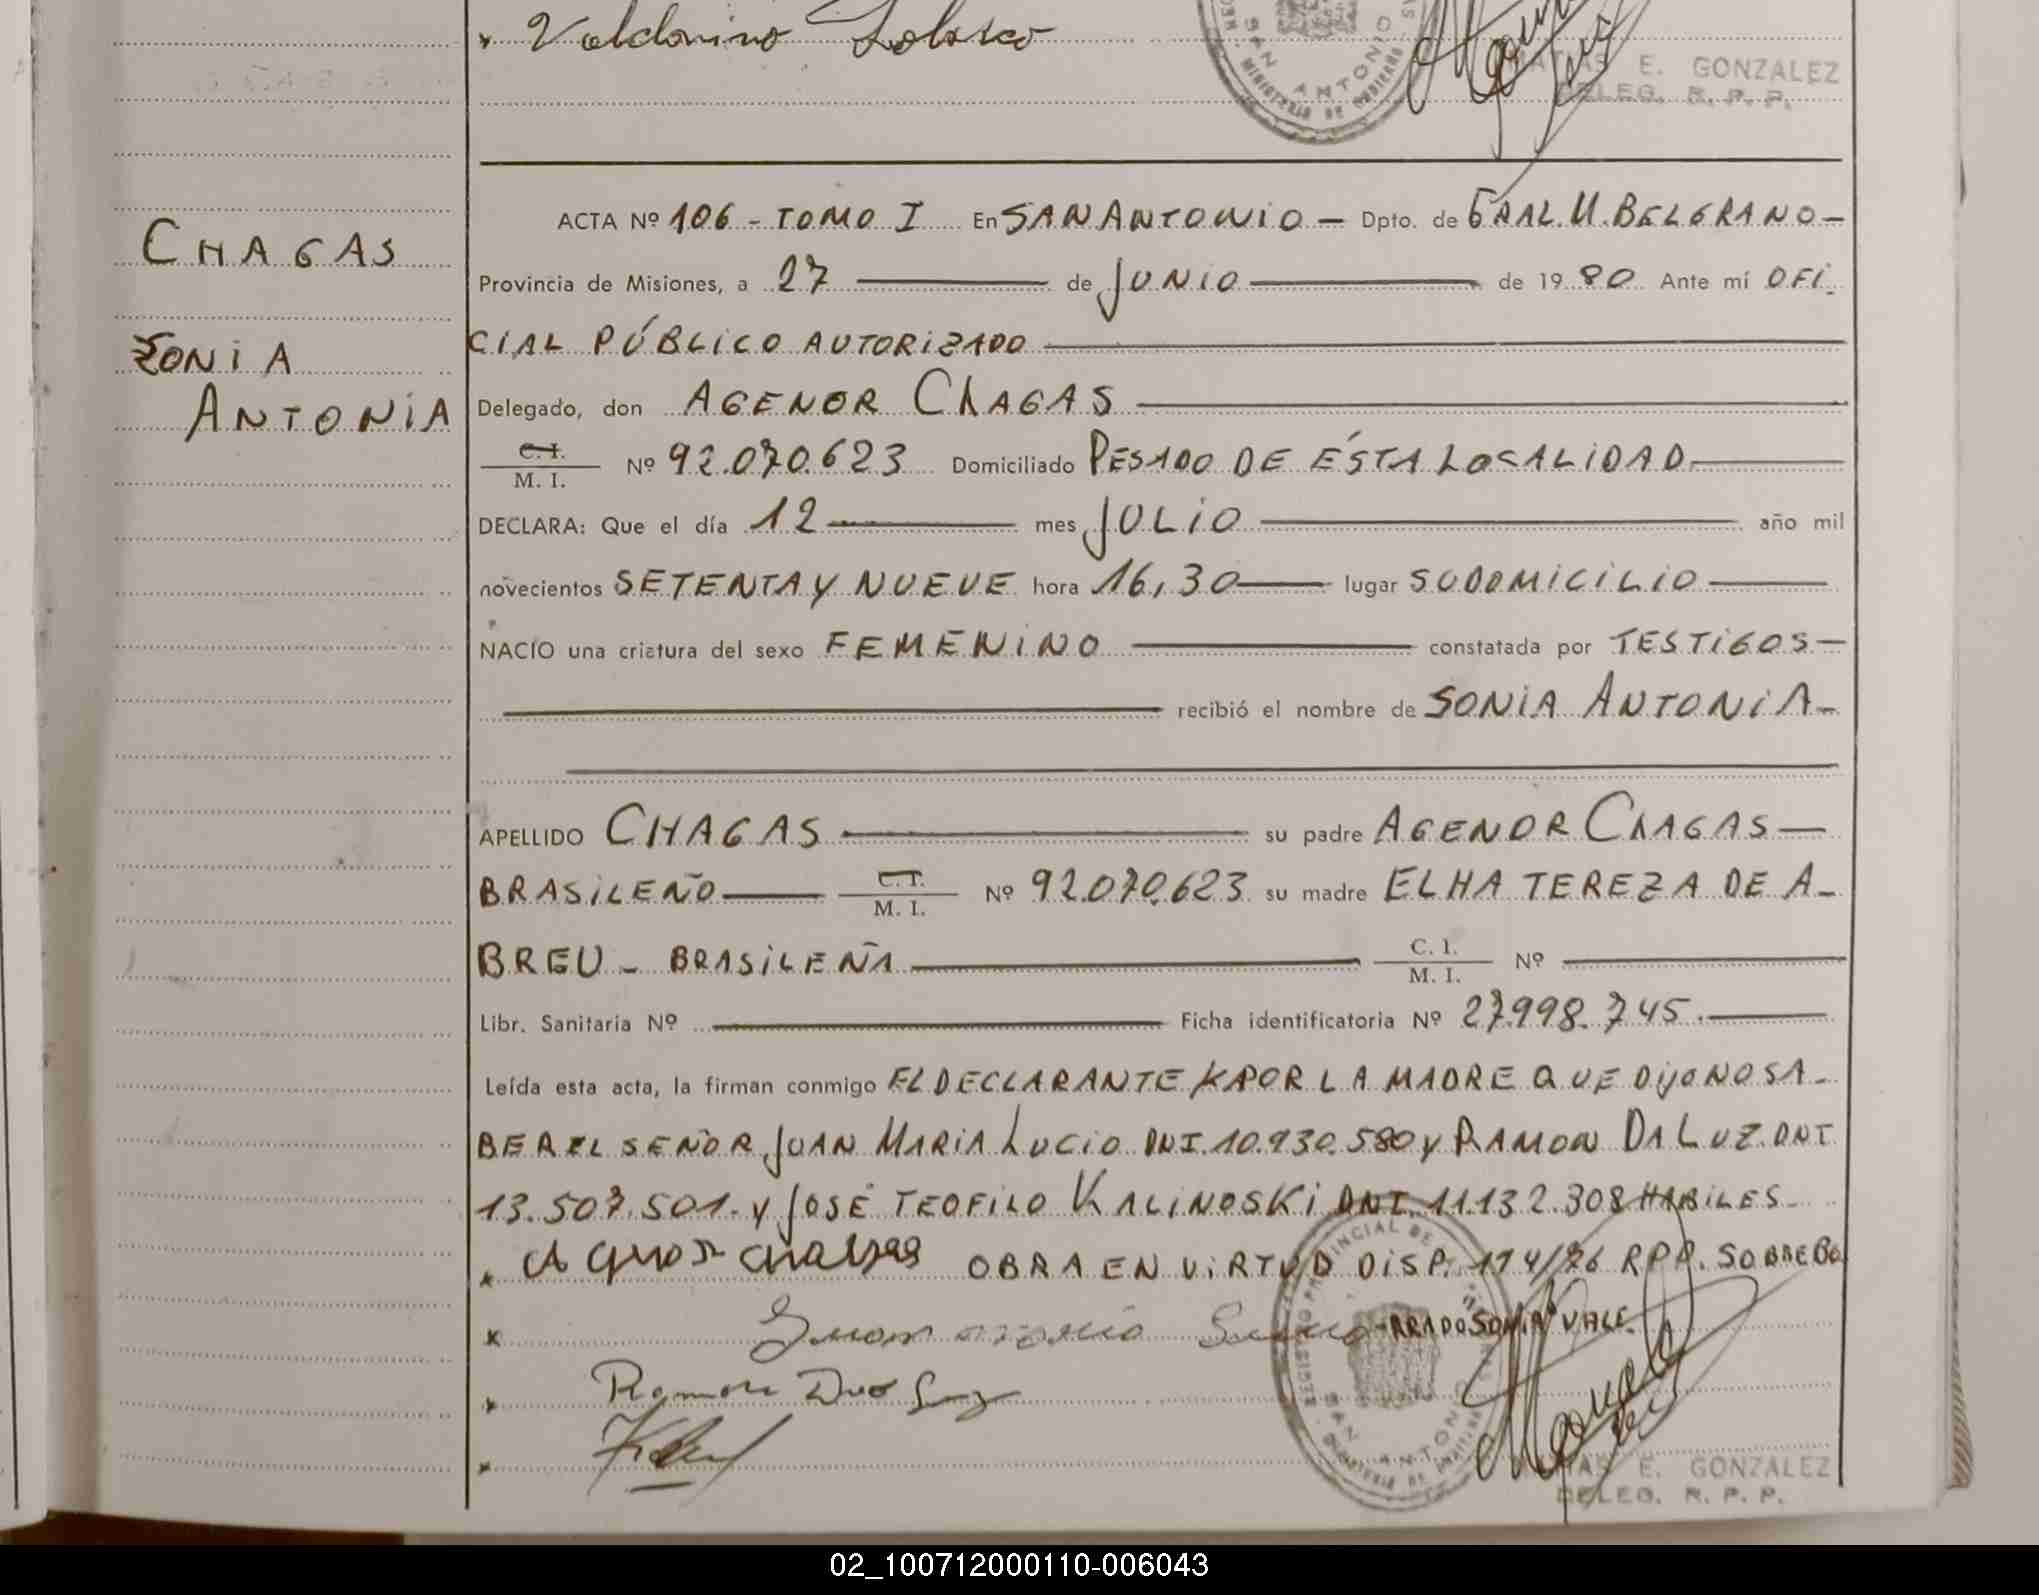 Valdonino
SAN ANTONIO
MINISTERIO DE GOBIERNO
E. GONZALEZ
DELEG. R. P. P.
CHAGAS
SONIA
ANTONIA
ACTA Nº 106 - TOMO I En SAN ANTONIO - Dpto. de GRAL. M. BELGRANO -
Provincia de Misiones, a 27 de JUNIO de 1980 Ante mí OFI-
CIAL PÚBLICO AUTORIZADO
Delegado, don AGENOR CHAGAS
C. I. / M. I. Nº 92.070.623 Domiciliado PESADO DE ÉSTA LOCALIDAD
DECLARA: Que el día 12 mes JULIO año mil
novecientos SETENTA Y NUEVE hora 16,30 lugar SU DOMICILIO
NACIO una criatura del sexo FEMENINO constatada por TESTIGOS -
recibió el nombre de SONIA ANTONIA -
APELLIDO CHAGAS su padre AGENOR CHAGAS -
BRASILEÑO C. I. / M. I. Nº 92.070.623 su madre ELHA TEREZA DE A-
BREU - BRASILEÑA C. I. / M. I. Nº
Libr. Sanitaria Nº Ficha identificatoria Nº 27.998.745.
Leída esta acta, la firman conmigo EL DECLARANTE Y POR LA MADRE QUE DIJO NO SA-
BER EL SEÑOR JUAN MARIA LUCIO DNI. 10.930.580 y RAMON DA LUZ DNI
13.507.501. y JOSÉ TEOFILO KALINOSKI DNI. 11.132.308 HABILES -
OBRA EN VIRTUD DISP. 114/76 RPP. SOBRE BO
RRADO SONIA VALE.
Ramon
REGISTRO PROVINCIAL DE LAS PERSONAS
SAN ANTONIO
MINISTERIO DE GOBIERNO
E. GONZALEZ
DELEG. R. P. P.
02_100712000110-006043